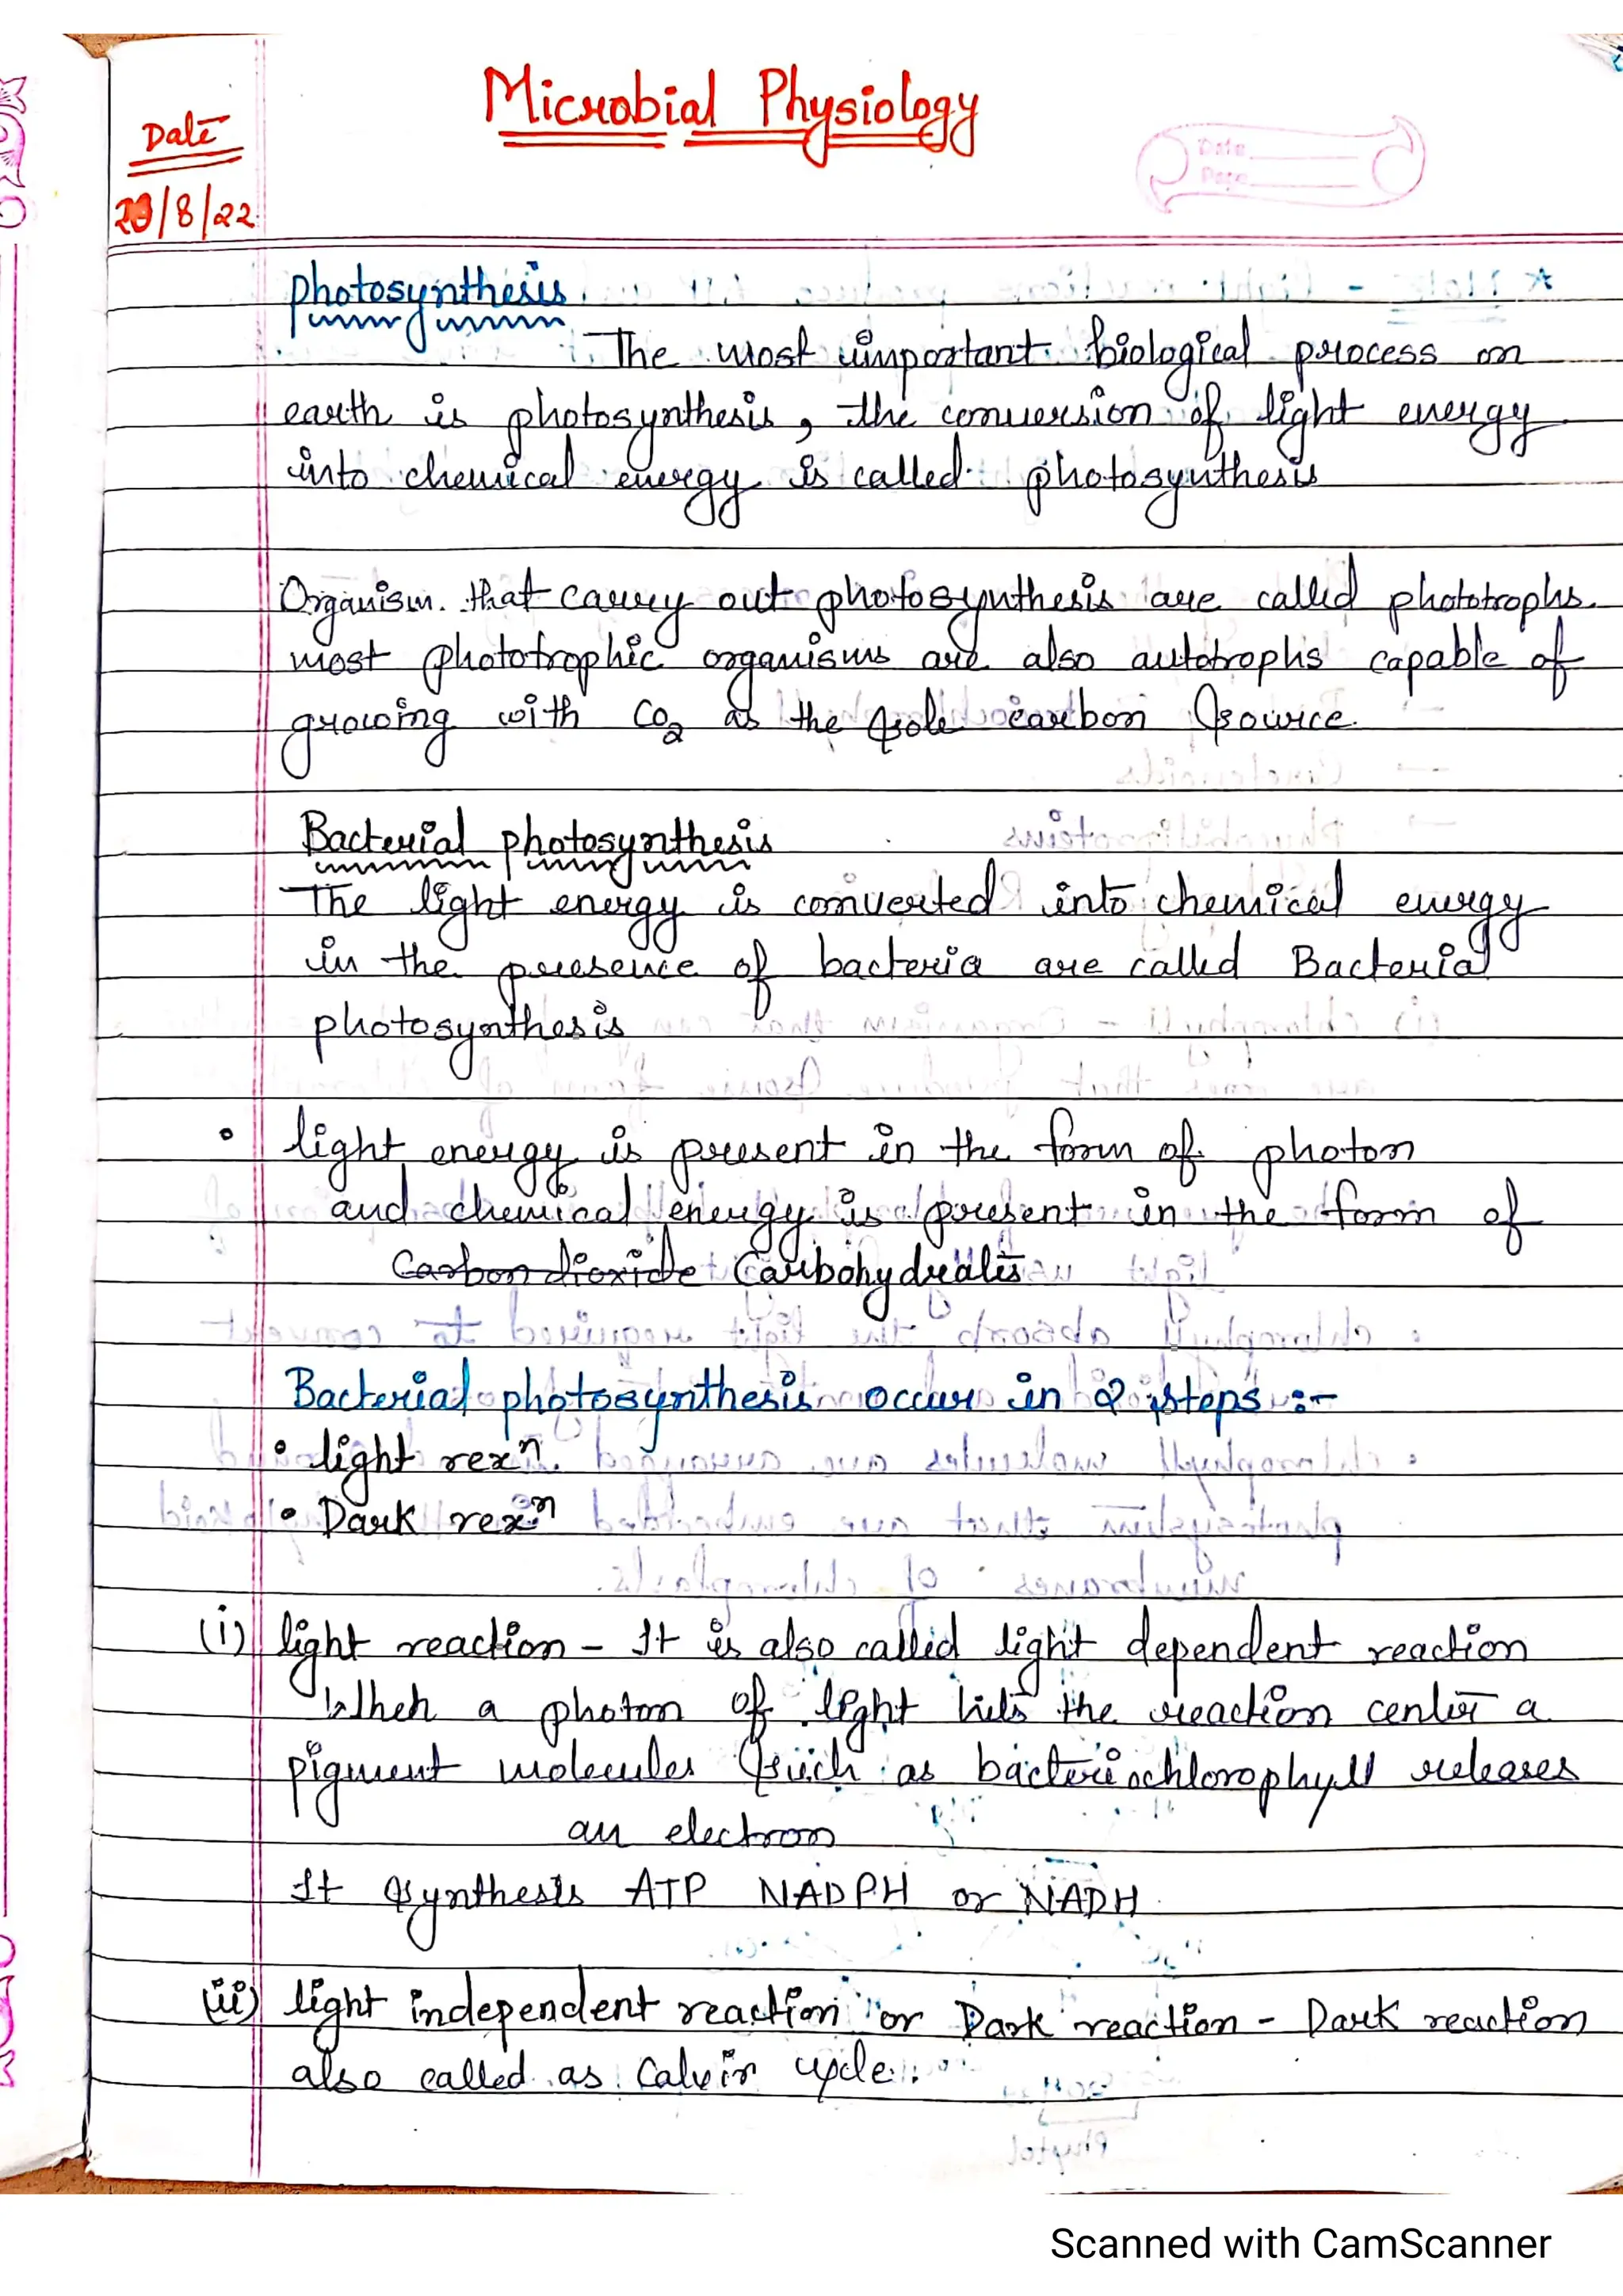 Microbial Physiology
Date
Date
Page
/8/22
photosynthesis
The most important biological process on
earth is photosynthesis, the conversion of light energy
into chemical energy is called photosynthesis
Organism that carry out photosynthesis are called phototrophs.
most phototrophic organisms are also autotrophs capable of
growing with CO2 as the sole carbon source.
Bacterial photosynthesis
The light energy is converted into chemical energy
in the presence of bacteria are called Bacterial
photosynthesis
• light energy is present in the form of photon
and chemical energy is present in the form of
Carbon dioxide Carbohydrates
Bacterial photosynthesis occur in 2 steps :-
• light rexn.
• Dark rexn
(i) light reaction - It is also called light dependent reaction
When a photon of light hits the reaction center a
pigment molecules such as bacteriochlorophyll releases
an electron
It synthesis ATP NADPH or NADH
(ii) light independent reaction or Dark reaction - Dark reaction
also called as Calvin cycle.
Scanned with CamScanner